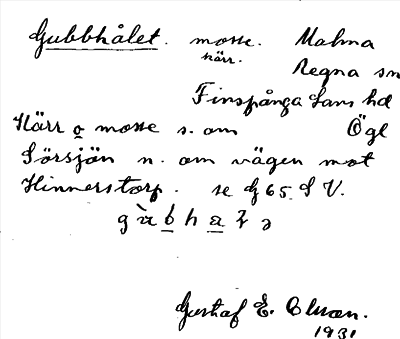 Gubbhålet. mosse. Malma
kärr. Regna sn
Finspånga läns hd
Kärr o mosse s. om Ögl
Sörsjön n. om vägen mot
Hinnerstorp. se G 65 S V.
Gustaf E. Olsson.
1931